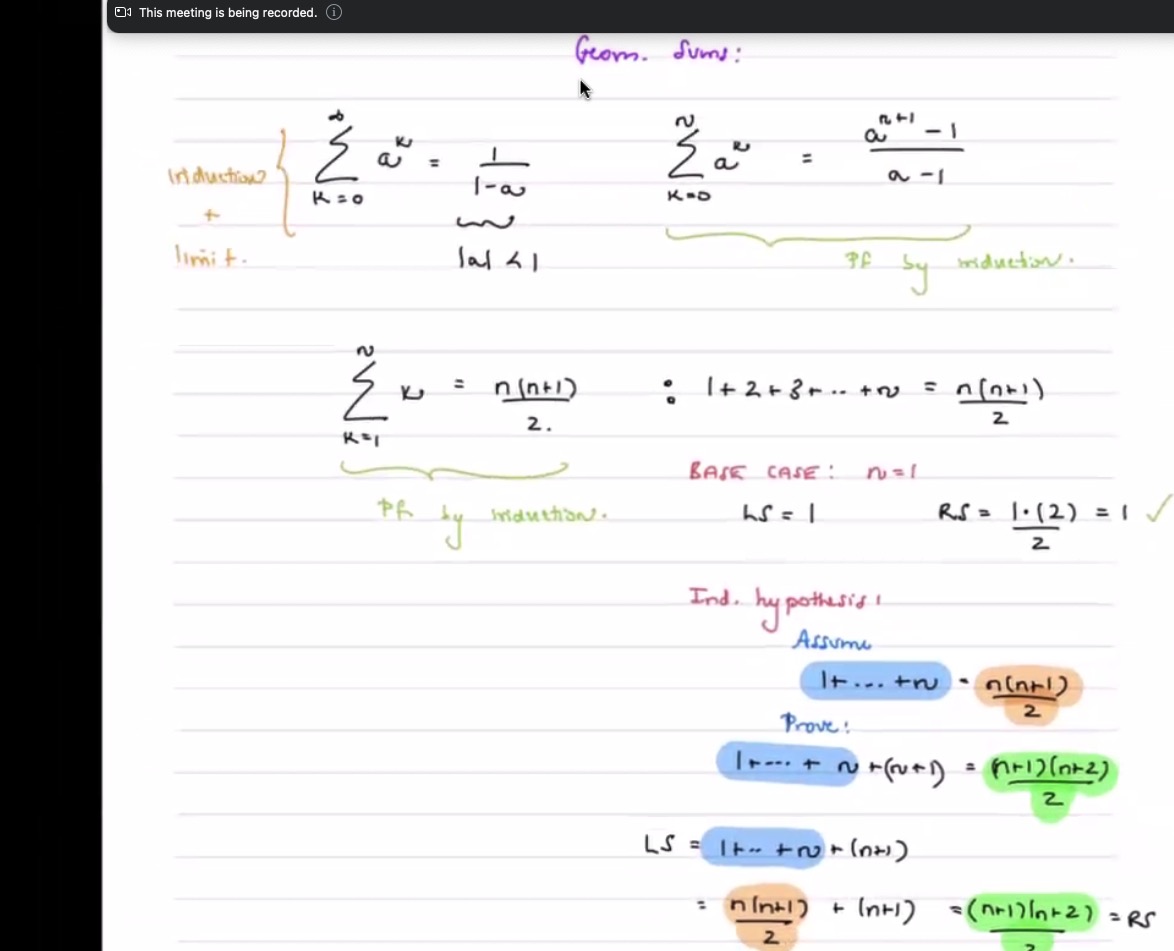 This meeting is being recorded.
Geom. Sums:
∞ ∑ K=0 a^k = 1/(1-a) |a| < 1
induction + limit.
n ∑ K=0 a^k = (a^(n+1) - 1)/(a - 1)
Pf by induction.
n ∑ K=1 K = n(n+1)/2. : 1+2+3+..+n = n(n+1)/2
Pf by induction.
BASE CASE: n=1
LS = 1 RS = 1·(2)/2 = 1 ✓
Ind. hypothesis:
Assume
1+...+n = n(n+1)/2
Prove:
1+...+ n +(n+1) = (n+1)(n+2)/2
LS = 1+..+n + (n+1)
= n(n+1)/2 + (n+1) = (n+1)(n+2)/2 = RS